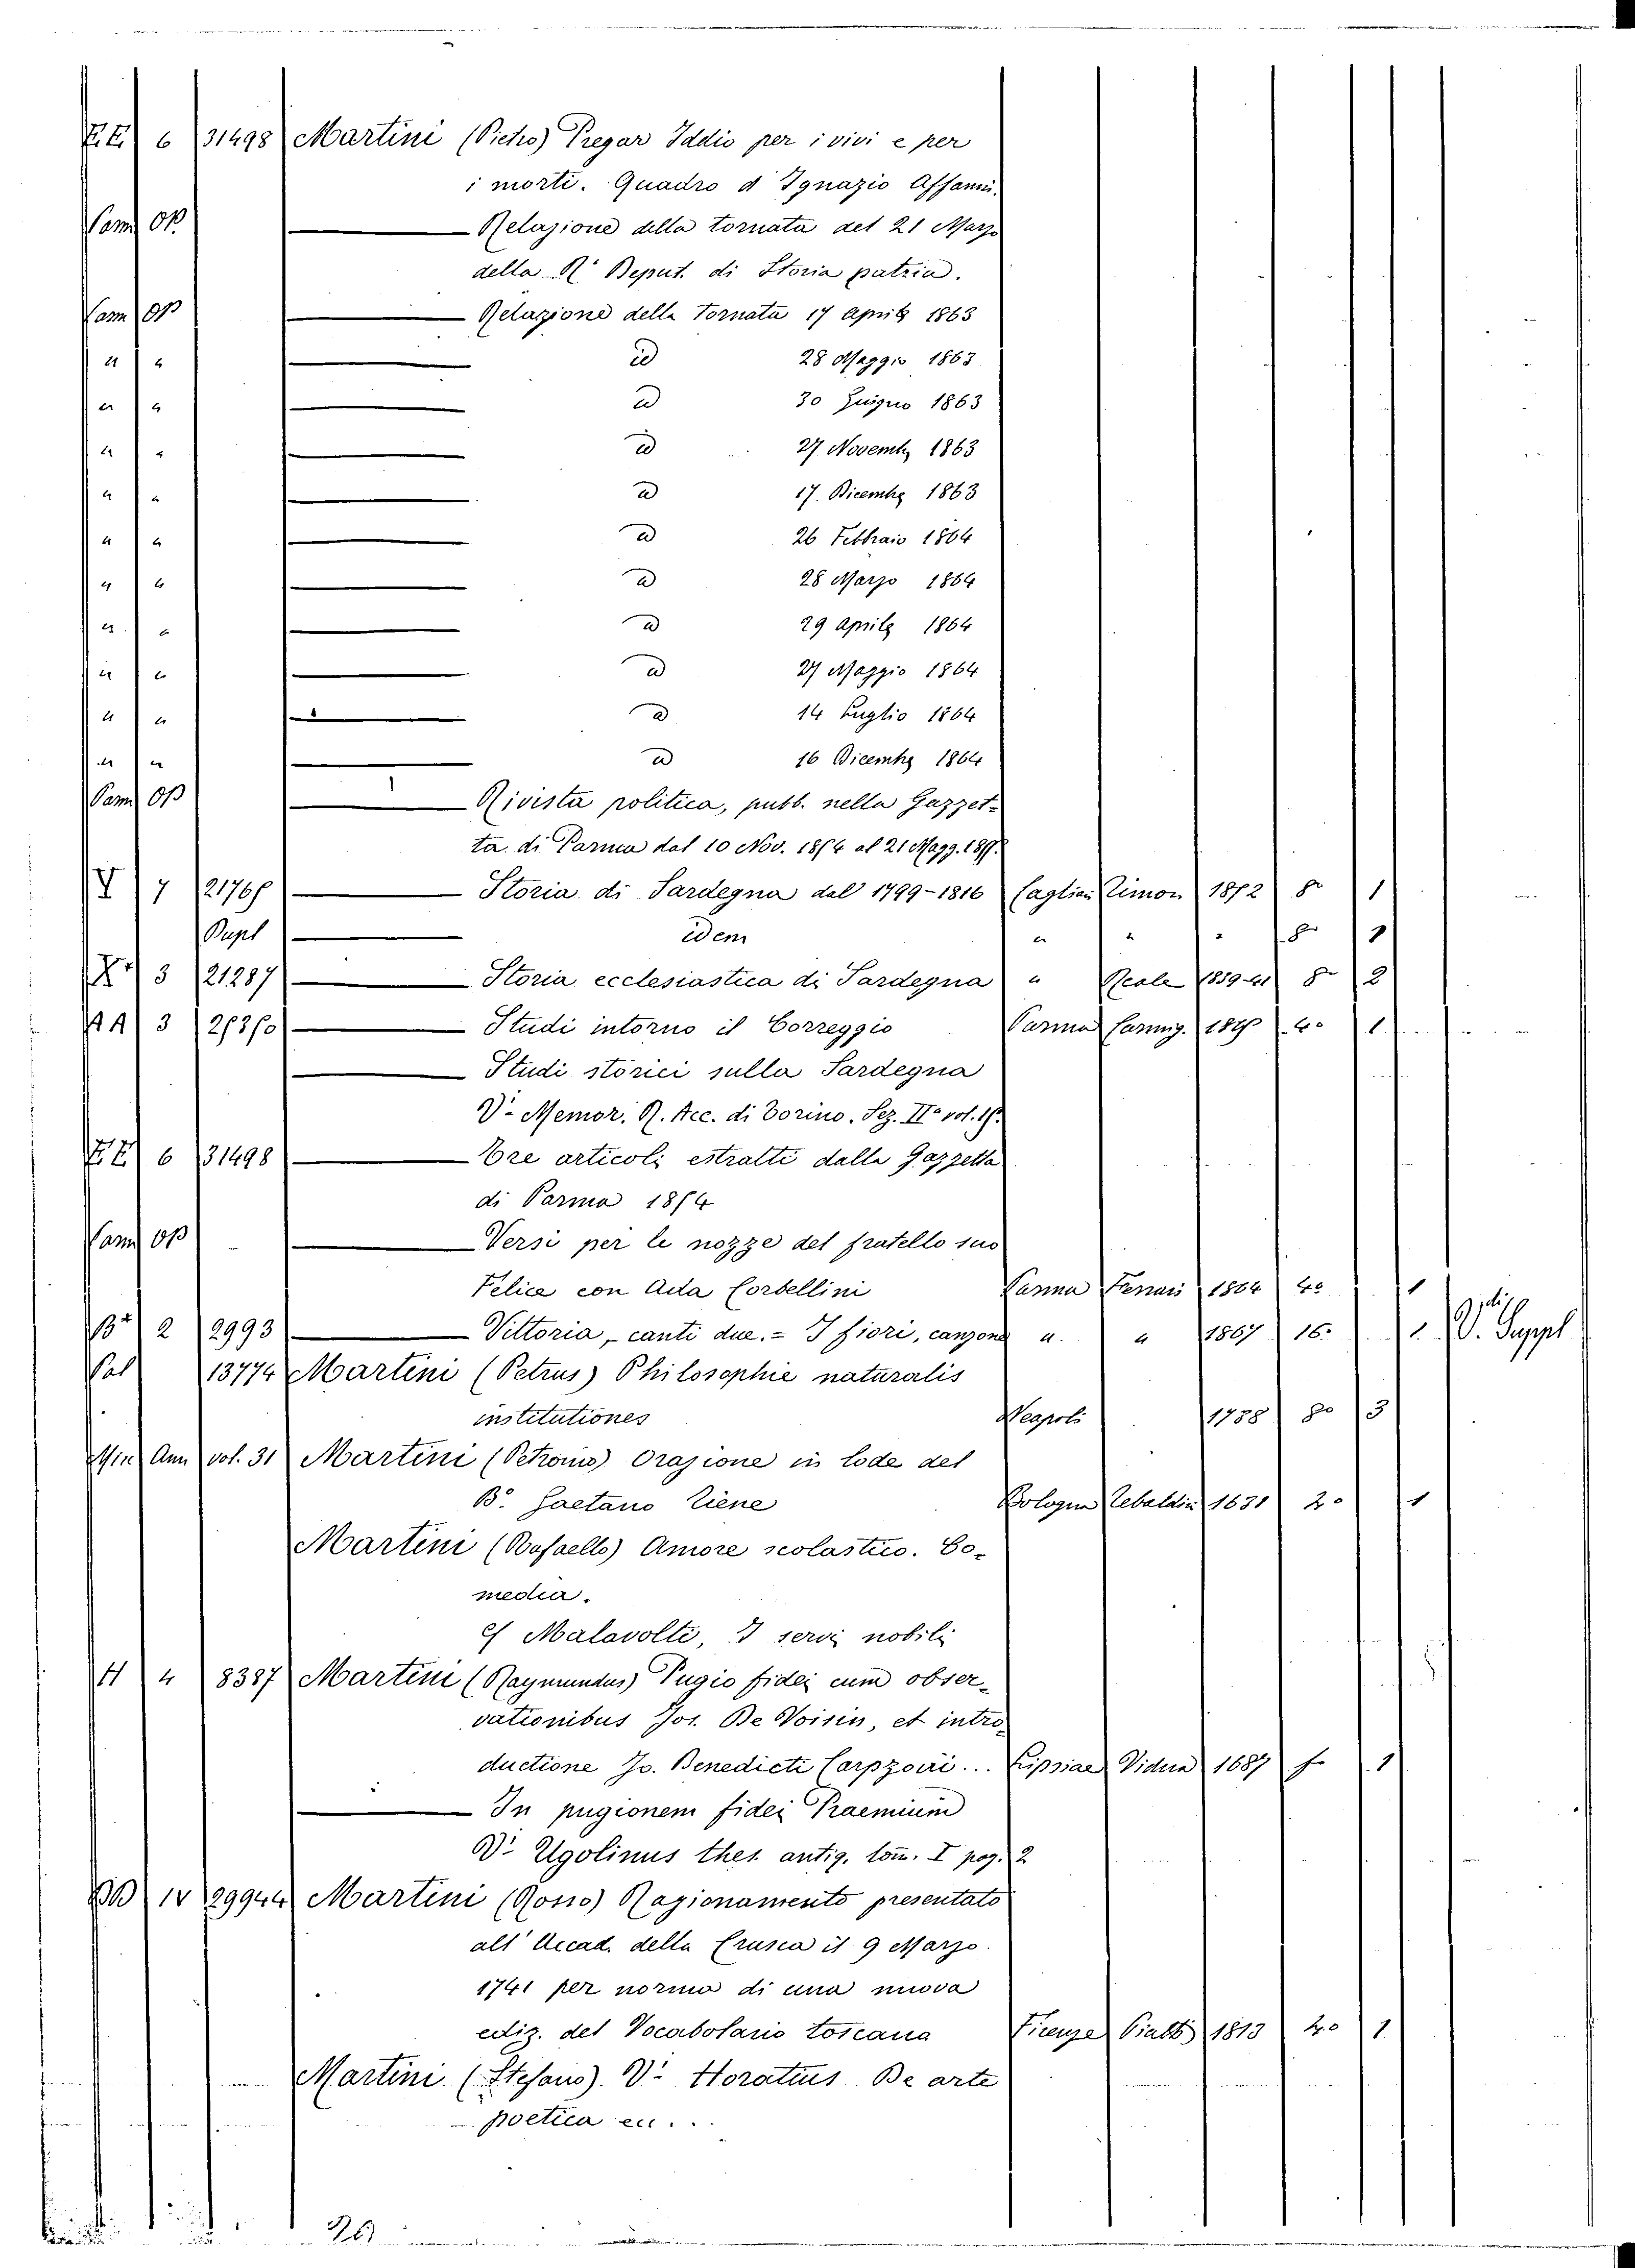 6 31498 Martini (Pietro) Pregar Iddio per i vivi e per
i morti. Quadro d'Ignazio Affanni.
Op. Relazione della tornata del 21 Marzo
della R. Deput. di Storia patria.
Op Relazione della Tornata 17 Aprile 1863
" " id 28 Maggio 1863
" " id 30 Giugno 1863
" " id 27 Novembre 1863
" " id 17. Dicembre 1863
" " id 26 Febbraio 1864
" " id 28 Marzo 1864
" " id 29 Aprile 1864
" " id 27 Maggio 1864
" " id 14 Luglio 1864
" " id 16 Dicembre 1864
Op Rivista politica, pubb. nella Gazzet-
ta di Parma dal 10 Nov. 1854 al 21 Magg.
7 Storia di Sardegna dal 1799-1816 Cagliari Timon 1852 8º 1
Dupl idem " " " 8º 1
3 21287 Storia ecclesiastica di Sardegna " Reale 1839-41 8º
3 Studi intorno il Correggio Parma 4º 1
Studi storici sulla Sardegna
Vº Memor. R. Acc. di Torino. Sez. IIª vol.
6 31498 Tre articoli estratti dalla Gazzetta
di Parma 1854
Op Versi per le nozze del fratello suo
Felice con Ada Corbellini Parma Ferrari 1864 4º 1
2 2993 Vittoria, canti due. = I fiori, canzone " " 1867 16º 1 V. Suppl
Pal 13774 Martini (Petrus) Philosophie naturalis
institutiones Neapoli 1788 8º 3
Ann vol. 31 Martini (Petronio) Orazione in lode del
B. Gaetano Tiene Bologna Tebaldini 1631 1
Martini (Rafaello) Amore scolastico. Co-
media.
cf Malavolti, I servi nobili
H 4 8387 Martini (Raymundus) Pugio fidei cum obser-
vationibus Jos. De Voisin, et intro-
ductione Jo. Benedicti Carpzovii... Lipsiae Vidua 1687 fº 1
In pugionem fidei Praemium
Vº Ugolinus thes. antiq. tom. I pag. 2
IV 29944 Martini (Rosso) Ragionamento presentato
all'Accad. della Crusca il 9 Marzo
1741 per norma di una nuova
ediz. del Vocabolario toscana Firenze Piatti 1813 4º 1
Martini (Stefano). Vº Horatius De arte
poetica